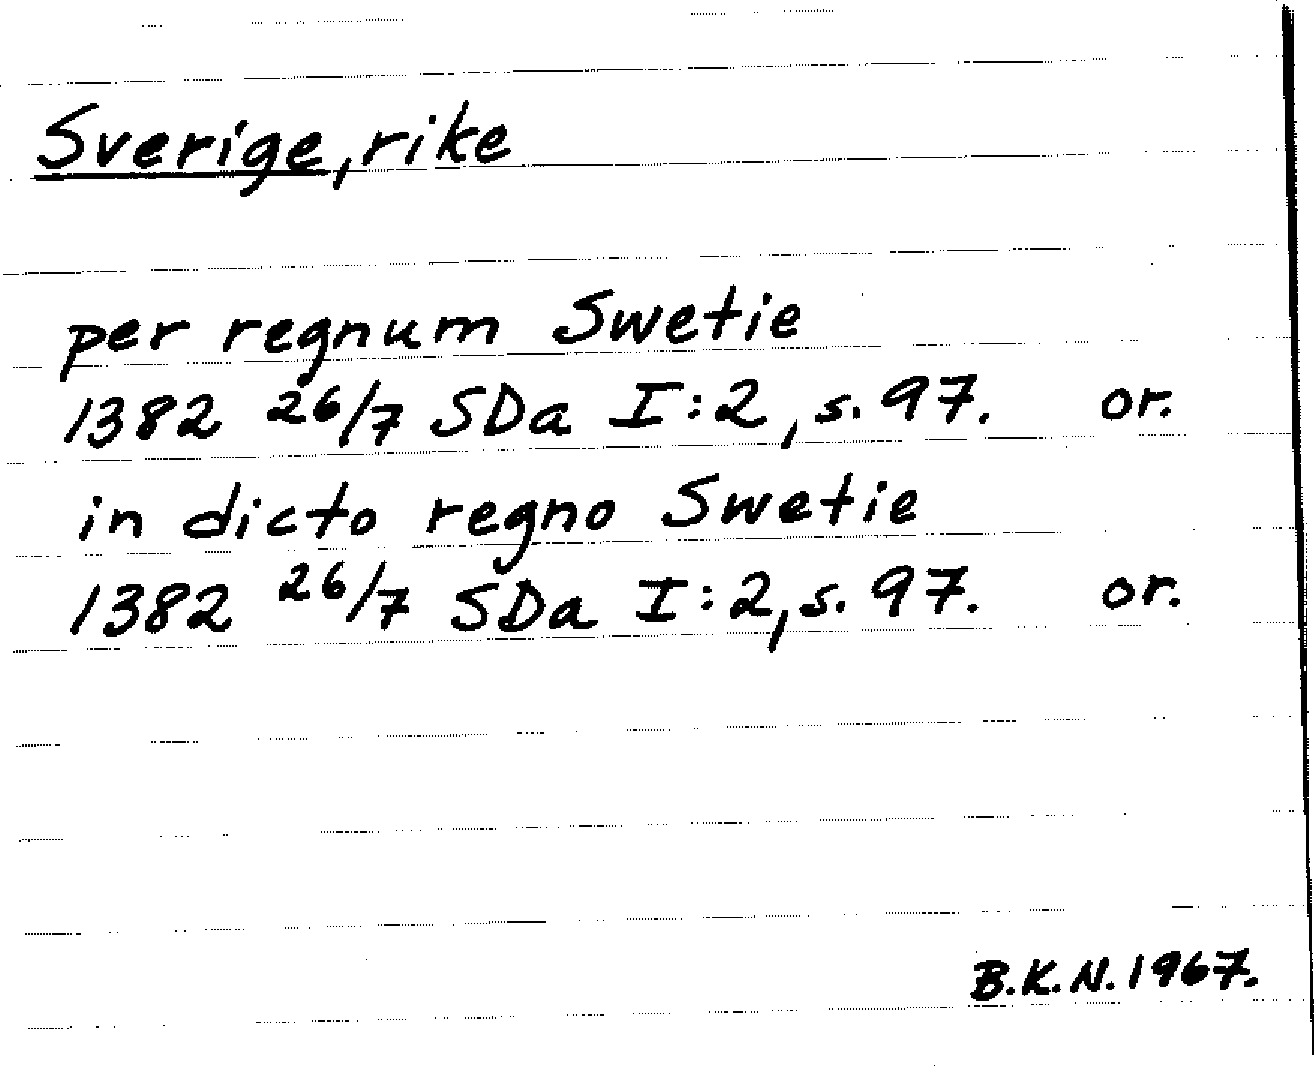 Sverige, rike
per regnum Swetie
1382 26/7 SDa I:2, s. 97. or.
in dicto regno Swetie
1382 26/7 SDa I:2, s. 97. or.
B.K.N. 1967.